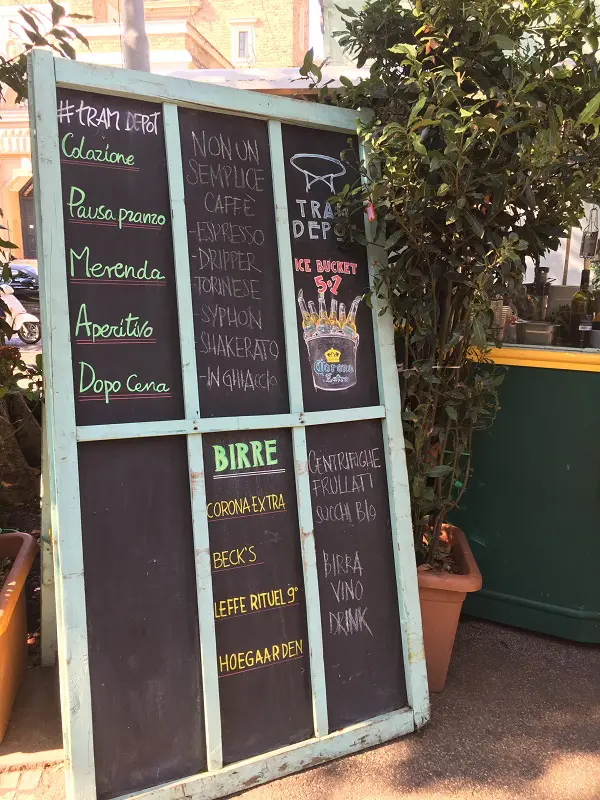 #TRAM DEPOT
Colazione
Pausa pranzo
Merenda
Aperitivo
Dopo Cena
NON UN
SEMPLICE
CAFFÈ
-ESPRESSO
-DRIPPER
-TORINESE
-SYPHON
-SHAKERATO
-IN GHIACCIO
TRAM
DEPOT
ICE BUCKET
5·7
Corona
Extra
BIRRE
CORONA EXTRA
BECK'S
LEFFE RITUEL 9°
HOEGAARDEN
CENTRIFIGHE
FRULLATI
SUCCHI BIO
BIRRA
VINO
DRINK